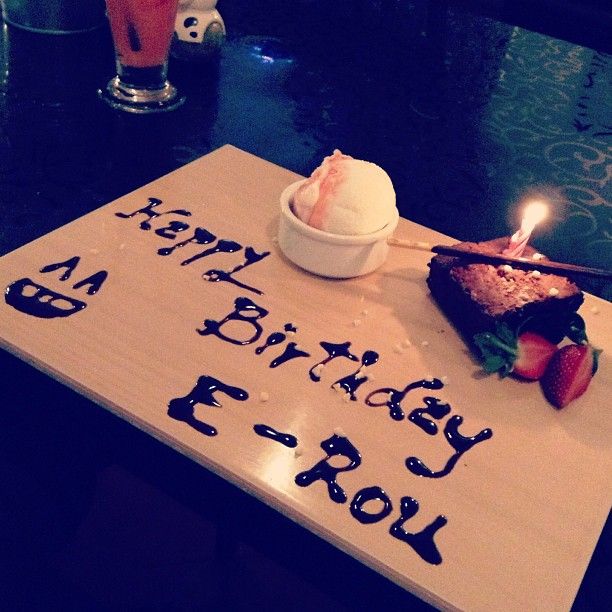 Happy
Birthday
E-Rou